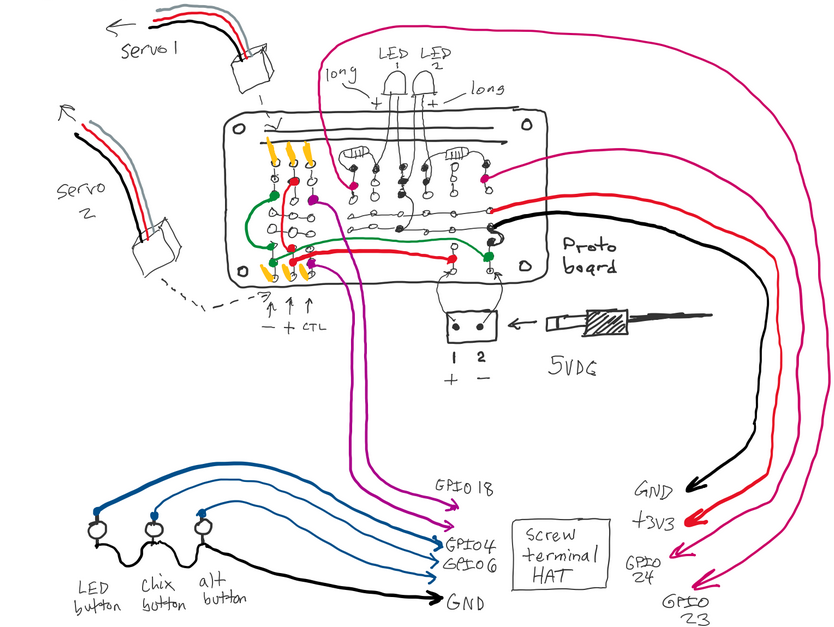 servo 1
LED
1
LED
2
long
+
long
+
servo
2
Proto
board
- + CTL
1 2
+ -
5VDC
GPIO 18
GPIO4
GPIO6
GND
screw
terminal
HAT
GND
+3V3
GPIO
24
GPIO
23
LED
button
chix
button
alt
button